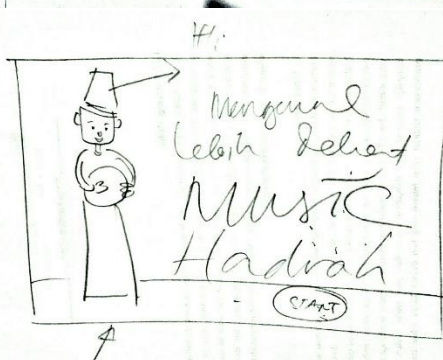 Hi
Mengenal
lebih dekat
MUSIC
Hadrah
START